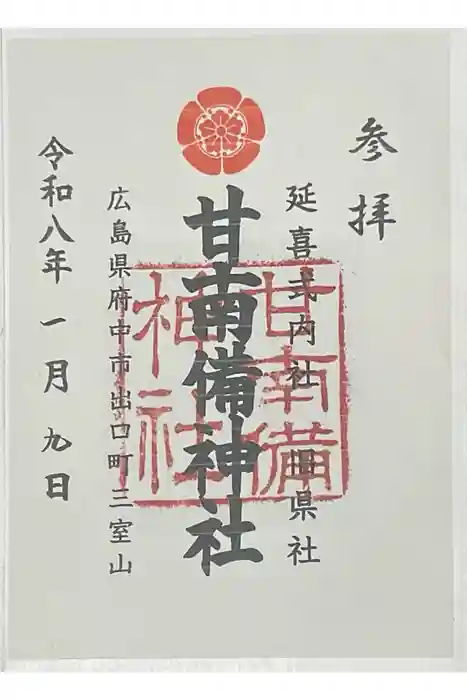 参拝
延喜式内社 旧県社
甘南備神社
甘南備神社
広島県府中市出口町三室山
令和八年 一月 九日